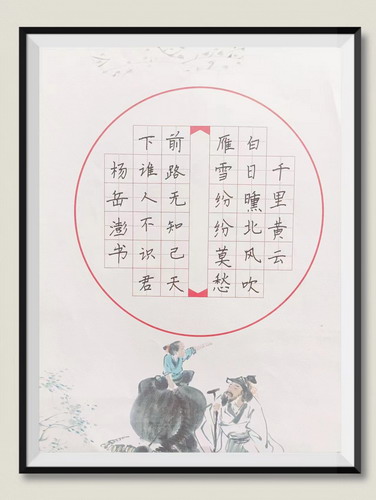 千里黄云
白日曛北风吹
雁雪纷纷莫愁
前路无知己天
下谁人不识君
杨岳澎书